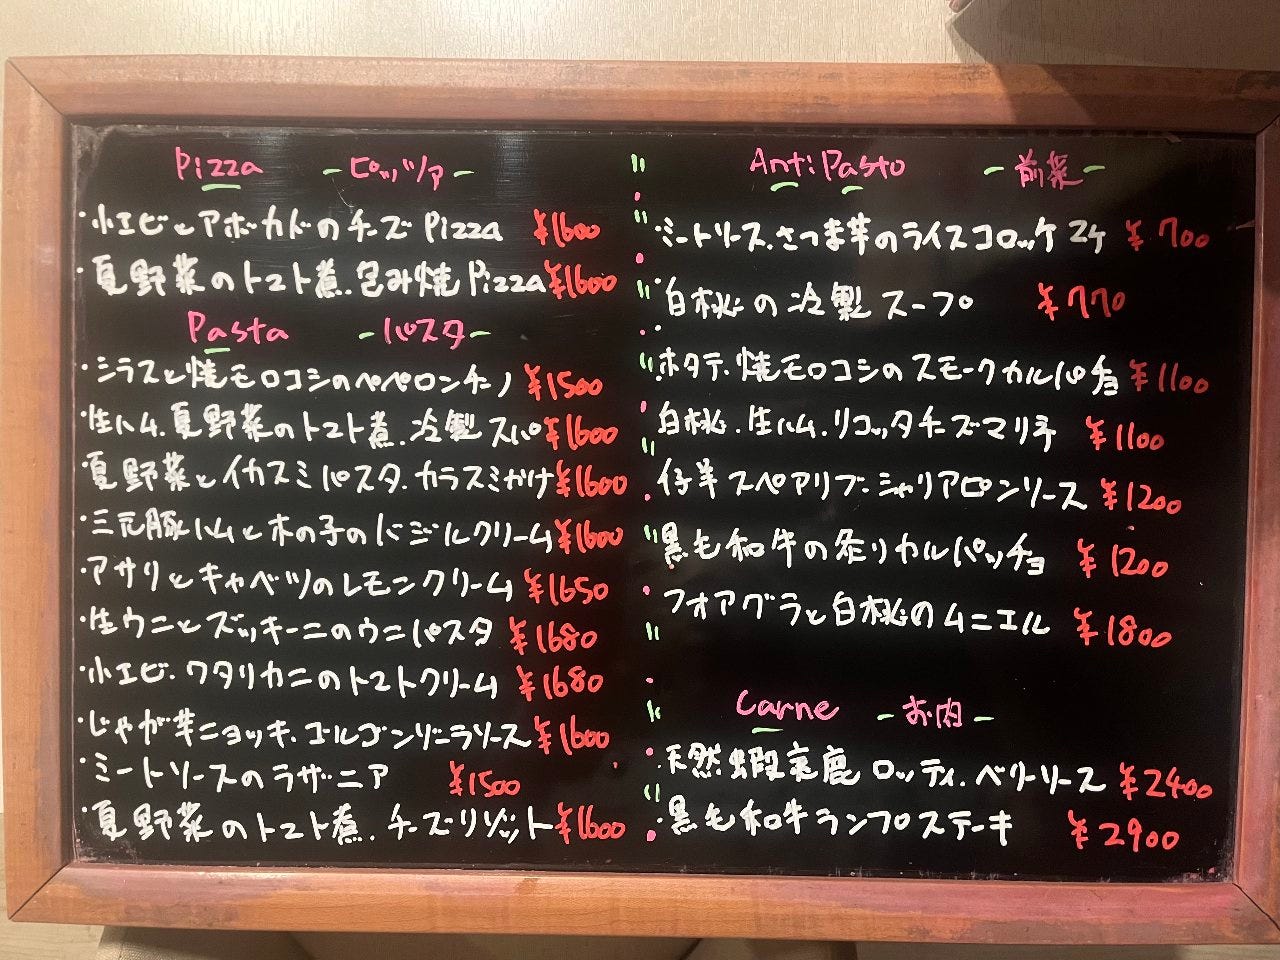 Pizza -ピッツァ-
・小エビとアボカドのチーズPizza ¥1600
・夏野菜のトマト煮.包み焼Pizza ¥1600
Pasta -パスタ-
・シラスと焼モロコシのペペロンチーノ ¥1500
・生ハム.夏野菜のトマト煮.冷製スパ ¥1600
・夏野菜とイカスミパスタ.カラスミがけ ¥1600
・三元豚ハムと木の子のバジルクリーム ¥1600
・アサリとキャベツのレモンクリーム ¥1650
・生ウニとズッキーニのウニパスタ ¥1680
・小エビ.ワタリカニのトマトクリーム ¥1680
・じゃが芋ニョッキ.ゴルゴンゾーラソース ¥1600
・ミートソースのラザニア ¥1500
・夏野菜のトマト煮.チーズリゾット ¥1600
AntiPasto -前菜-
・ミートソース.さつま芋のライスコロッケ2ケ ¥700
・白桃の冷製スープ ¥770
・ホタテ.焼モロコシのスモークカルパチョ ¥1100
・白桃.生ハム.リコッタチーズマリネ ¥1100
・仔羊スペアリブ.シャリアピンソース ¥1200
・黒毛和牛の炙りカルパッチョ ¥1200
・フォアグラと白桃のムニエル ¥1800
Carne -お肉-
・天然蝦夷鹿ロッティ.ベリーソース ¥2400
・黒毛和牛ランプステーキ ¥2900